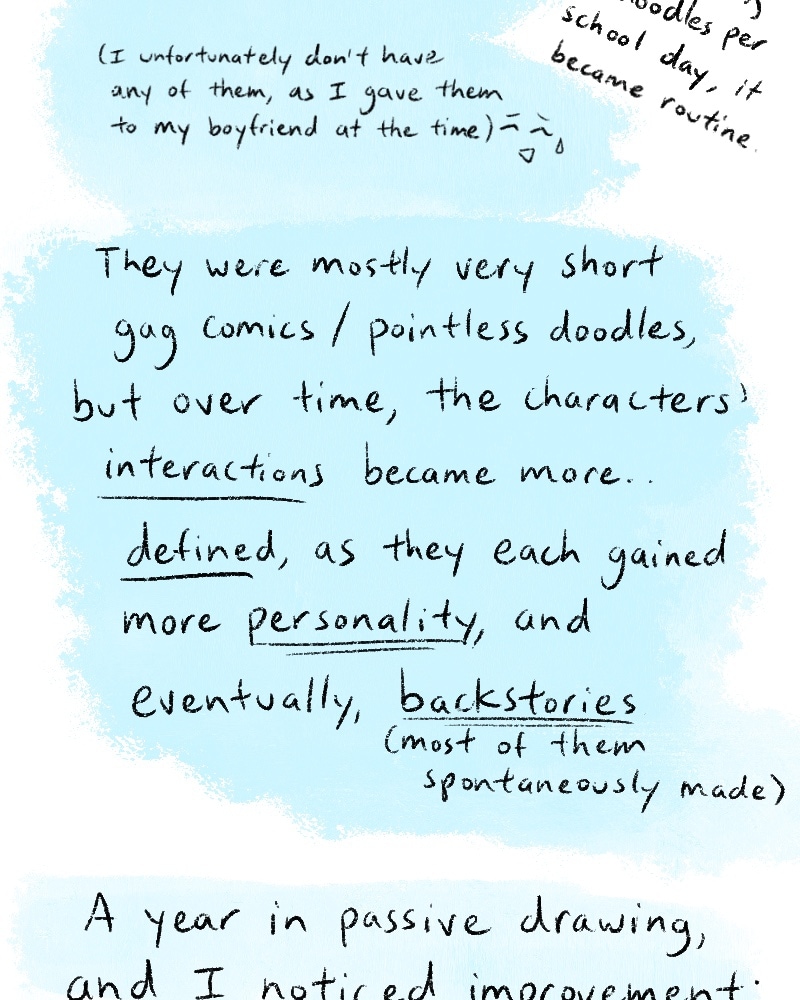 doodles per
school day, it
became routine.
(I unfortunately don't have
any of them, as I gave them
to my boyfriend at the time)
They were mostly very short
gag comics / pointless doodles,
but over time, the characters'
interactions became more..
defined, as they each gained
more personality, and
eventually, backstories
(most of them
spontaneously made)
A year in passive drawing,
and I noticed improvement: